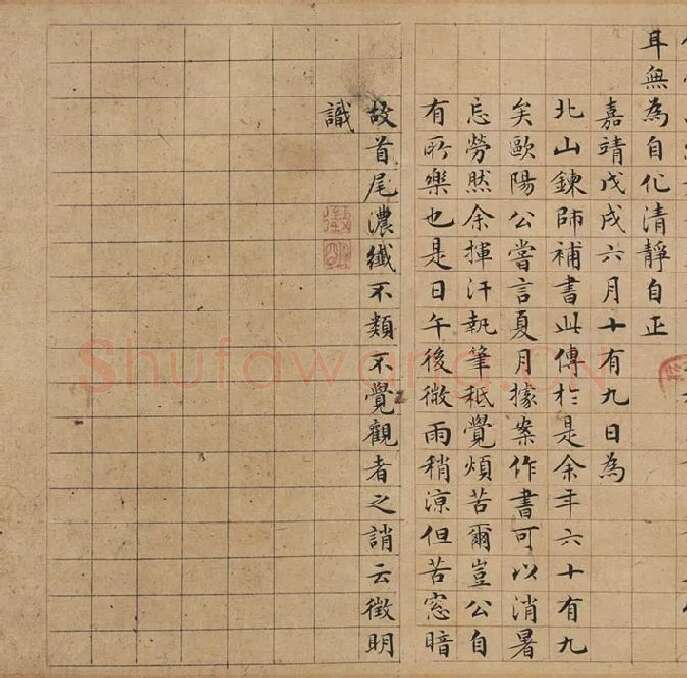 耳無為自化清靜自正
嘉靖戊戌六月十有九日為
北山鍊師補書此傳於是余年六十有九
矣歐陽公嘗言夏月據案作書可以消暑
忘勞然余揮汗執筆秖覺煩苦爾豈公自
有所樂也是日午後微雨稍涼但苦窓暗
故首尾濃纖不類不覺觀者之誚云徵明
識
Shufawang.CN